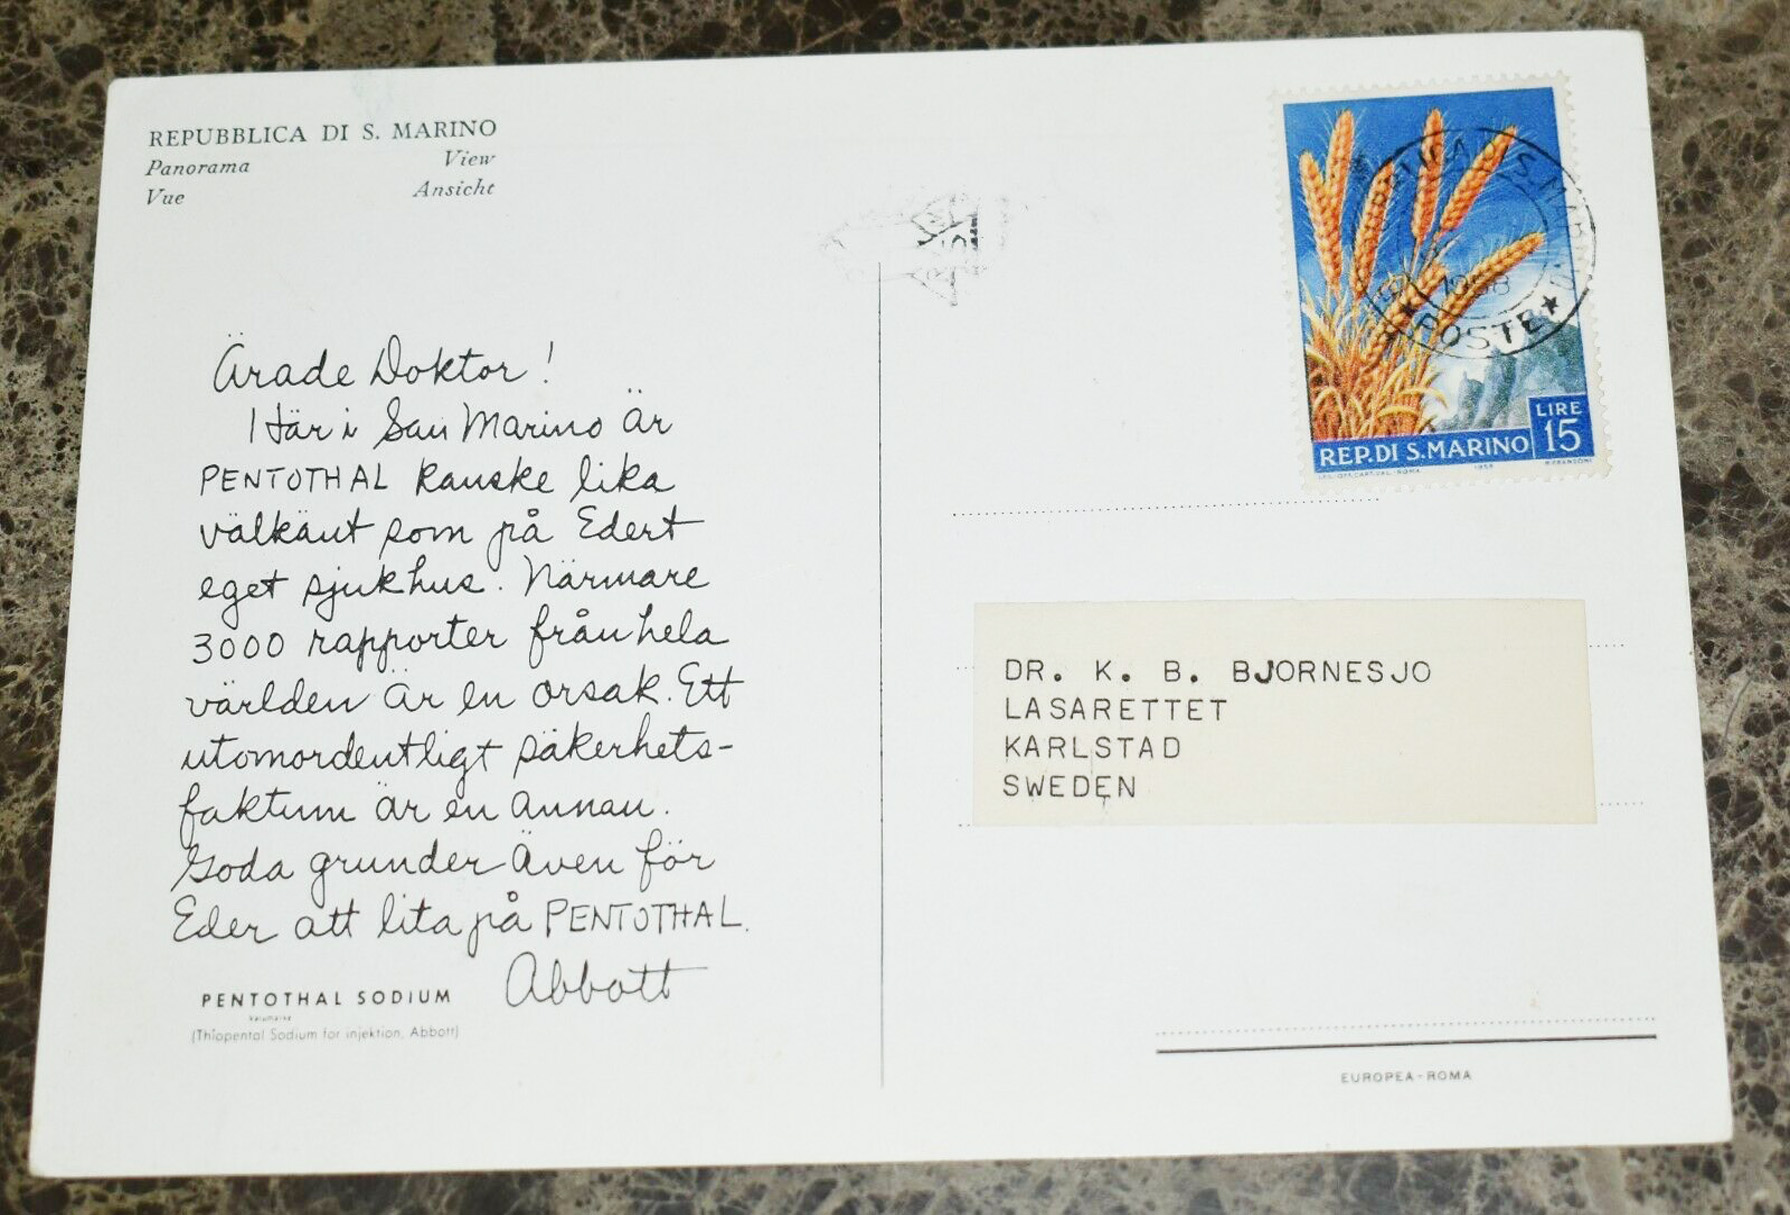 REPUBBLICA DI S. MARINO
Panorama View
Vue Ansicht
Ärade Doktor!
Här i San Marino är
PENTOTHAL kanske lika
välkänt som på Edert
eget sjukhus. Närmare
3000 rapporter från hela
världen är en orsak. Ett
utomordentligt säkerhets-
faktum är en annan.
Goda grunder även för
Eder att lita på PENTOTHAL.
Abbott
PENTOTHAL SODIUM
(Thiopental Sodium for injektion, Abbott)
S. MARINO
1958
POSTE
LIRE
15
REP. DI S. MARINO
1958
DR. K. B. BJORNESJO
LASARETTET
KARLSTAD
SWEDEN
EUROPEA-ROMA